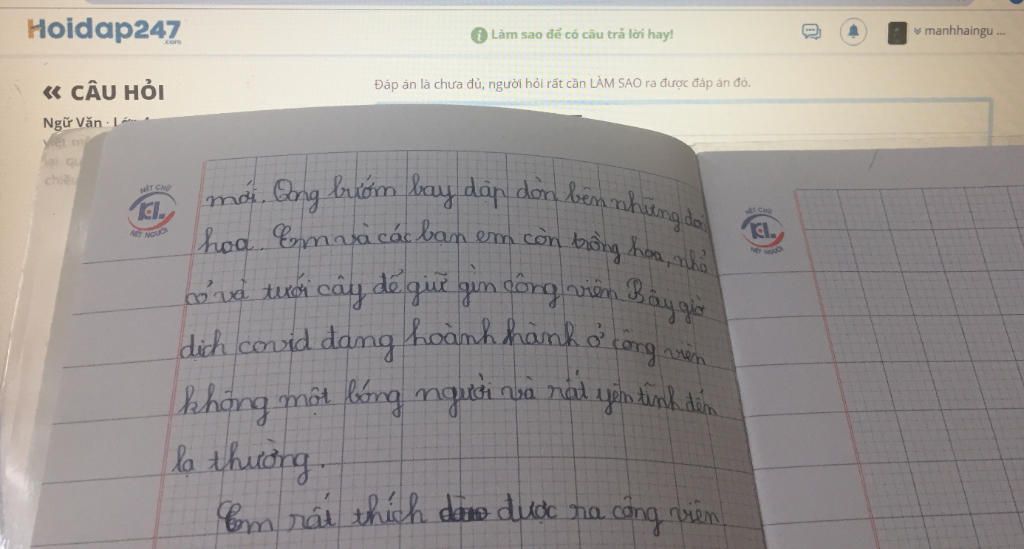 Hoidap247
.com
Làm sao để có câu trả lời hay!
manhhaingu ...
« CÂU HỎI
Đáp án là chưa đủ, người hỏi rất cần LÀM SAO ra được đáp án đó.
Ngữ Văn ·
NÉT CHỮ
KL
NẾT NGƯỜI
NÉT CHỮ
KL
NẾT NGƯỜI
mới. Ong bướm bay dập dờn bên những đoá
hoa. Em và các bạn em còn trồng hoa, nhổ
cỏ và tưới cây để giữ gìn công viên Bây giờ
dịch covid đang hoành hành ở công viên
không một bóng người và rất yên tĩnh đến
lạ thường.
Em rất thích được ra công viên